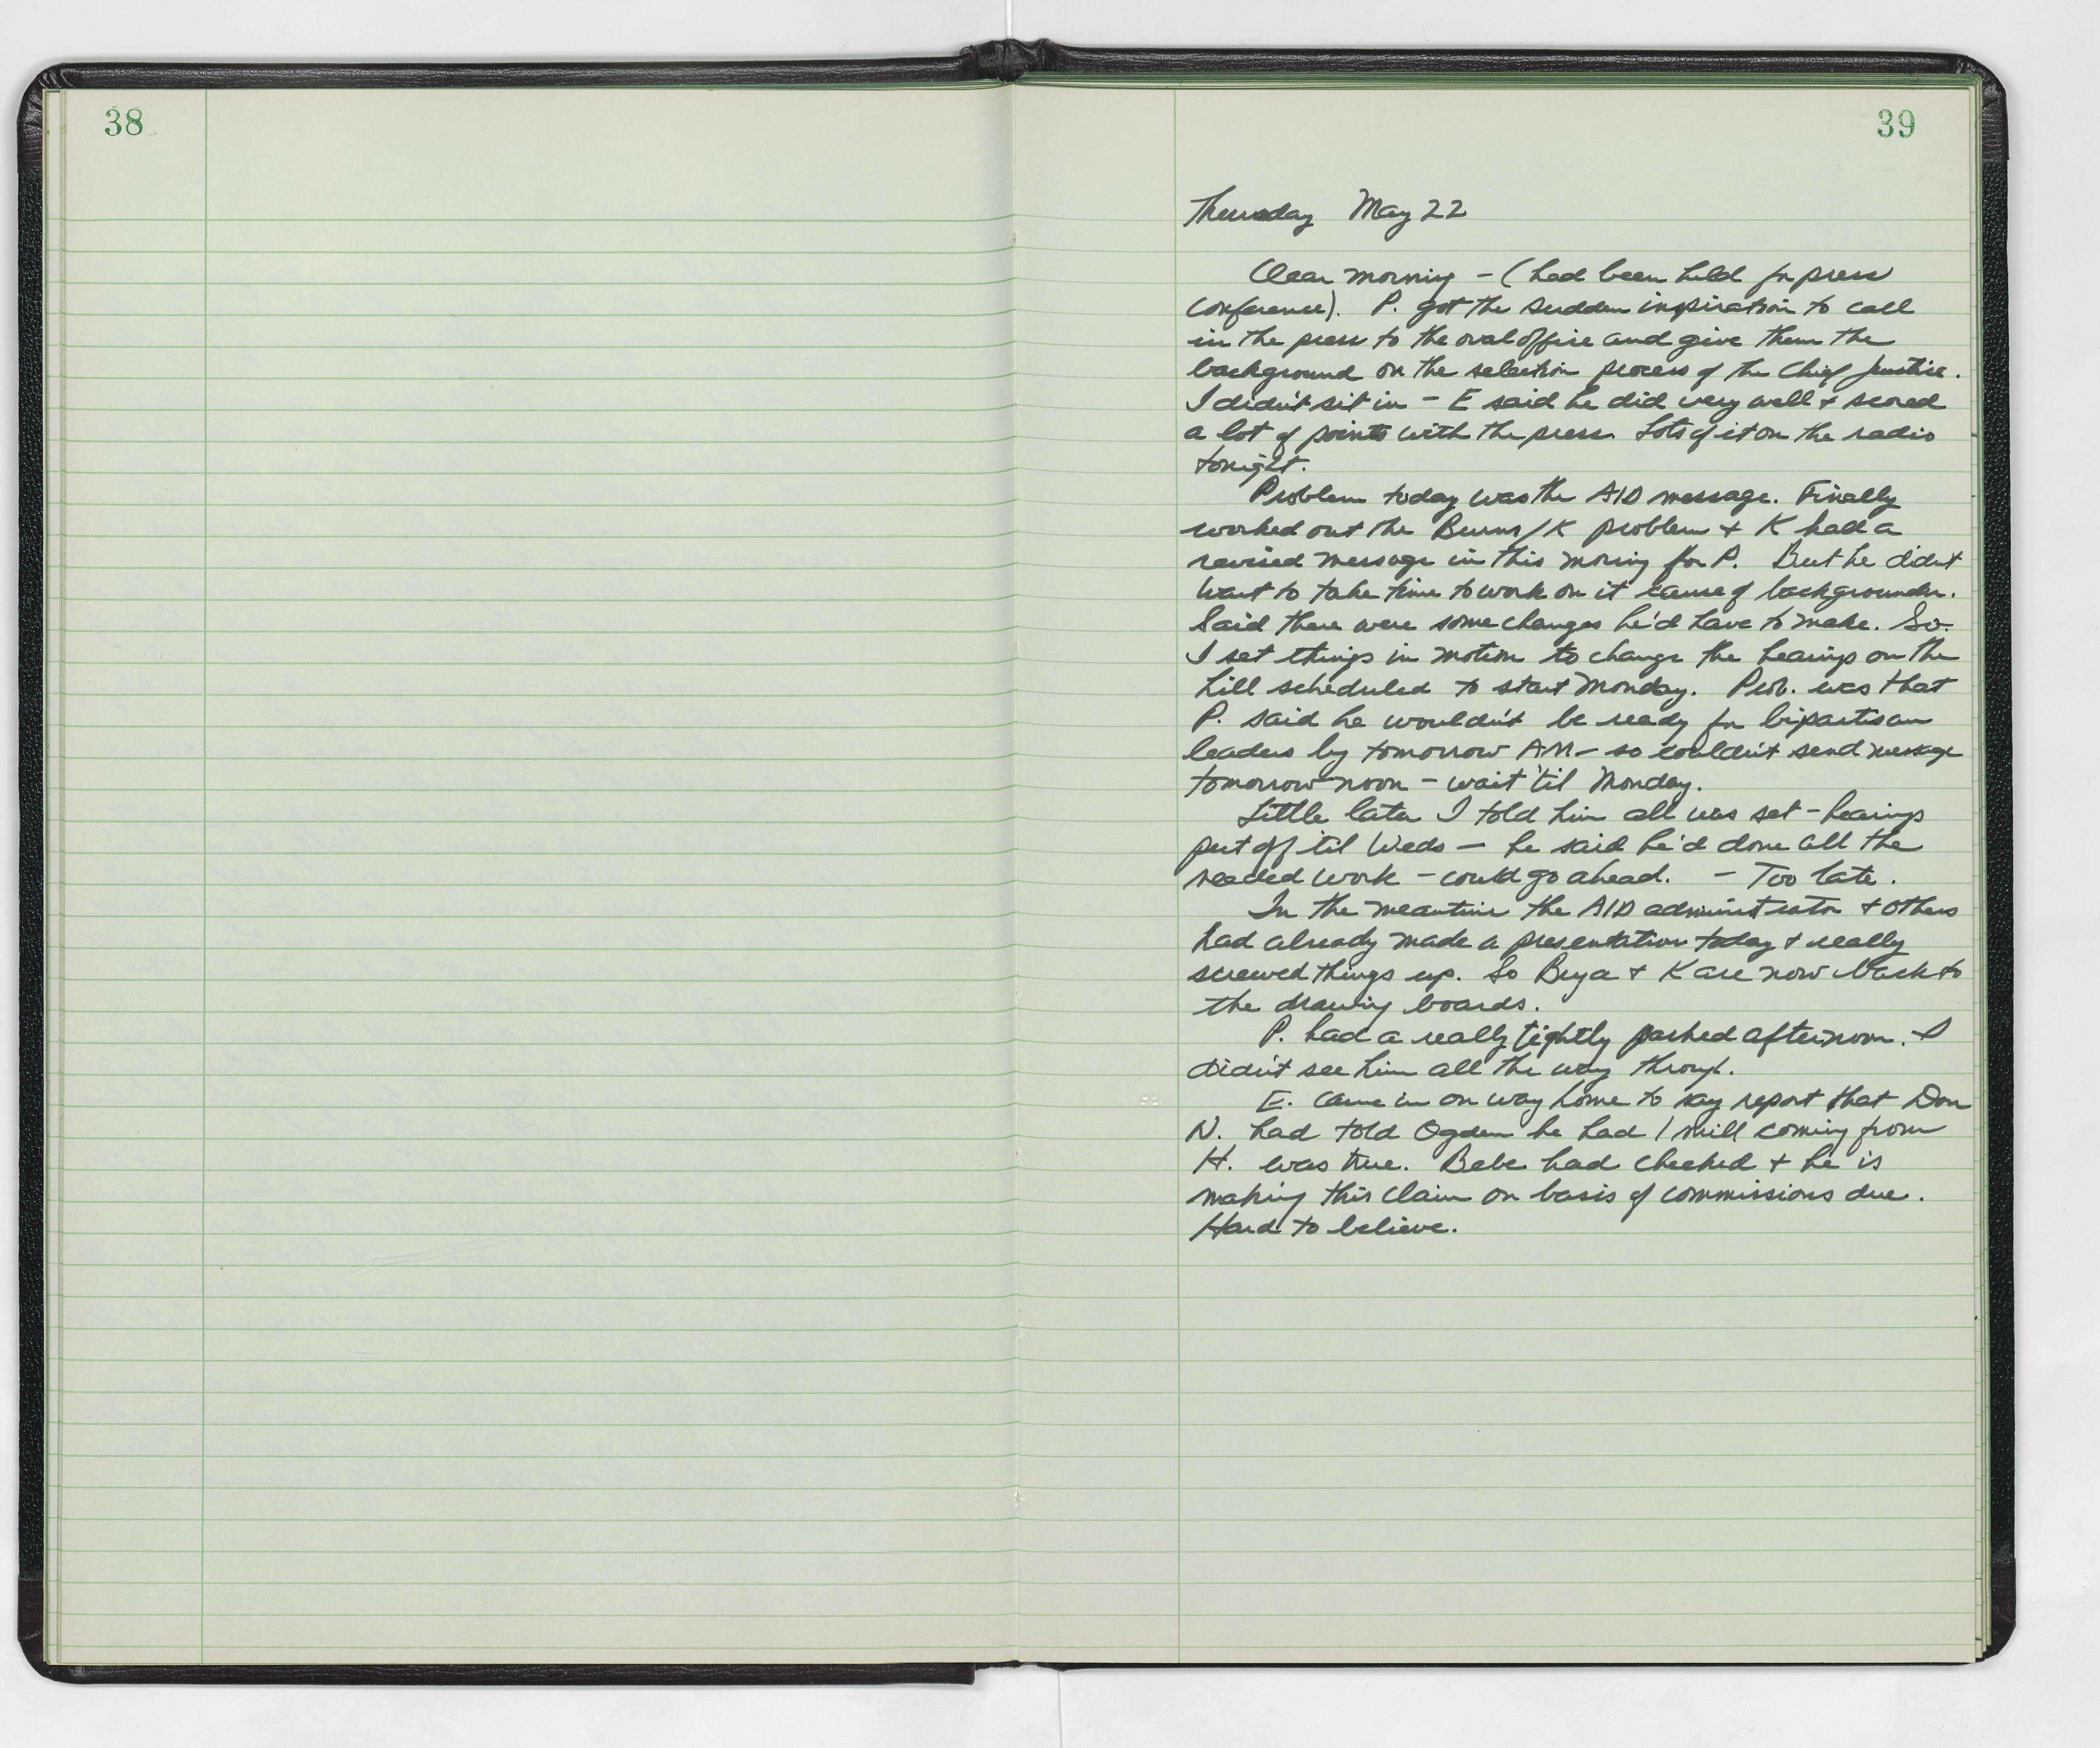 38
39
Thursday May 22
Clear morning - (had been held for press
conference). P. got the sudden inspiration to call
in the press to the oval office and give them the
background on the selection process of the Chief Justice.
I didn't sit in - E said he did very well + scored
a lot of points with the press. Lots of it on the radio
tonight.
Problem today was the AID message. Finally
worked out the Burns/K problem + K had a
revised message in this moring for P. But he didn't
want to take time to work on it cause of backgrounder.
Said there were some changes he'd have to make. So.
I set things in motion to change the hearings on the
hill scheduled to start Monday. Prob. was that
P. said he wouldn't be ready for bipartisan
leaders by tomorrow AM - so couldn't send message
tomorrow noon - wait 'til Monday.
Little later I told him all was set - hearings
put off 'til Weds - he said he'd done all the
needed work - could go ahead. - Too late.
In the meantime the AID administrator + others
had already made a presentation today + really
screwed things up. So + K are now back to
the drawing boards.
P. had a really tightly packed afternoon. I
didn't see him all the way through.
E. came in on way home to say report that Don
N. had told Ogden he had 1 mill coming from
H. was true. Bebe had checked + he is
making this claim on basis of commissions due.
Hard to believe.